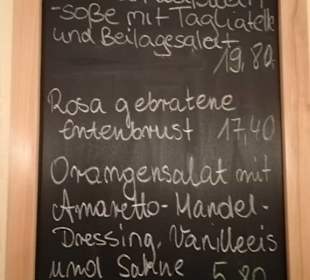 -soße mit Tagliatelle
und Beilagesalat
19,80.
Rosa gebratene
Entenbrust 17,40
Orangensalat mit
Amaretto-Mandel-
Dressing, Vanilleeis
und Sahne 5,80